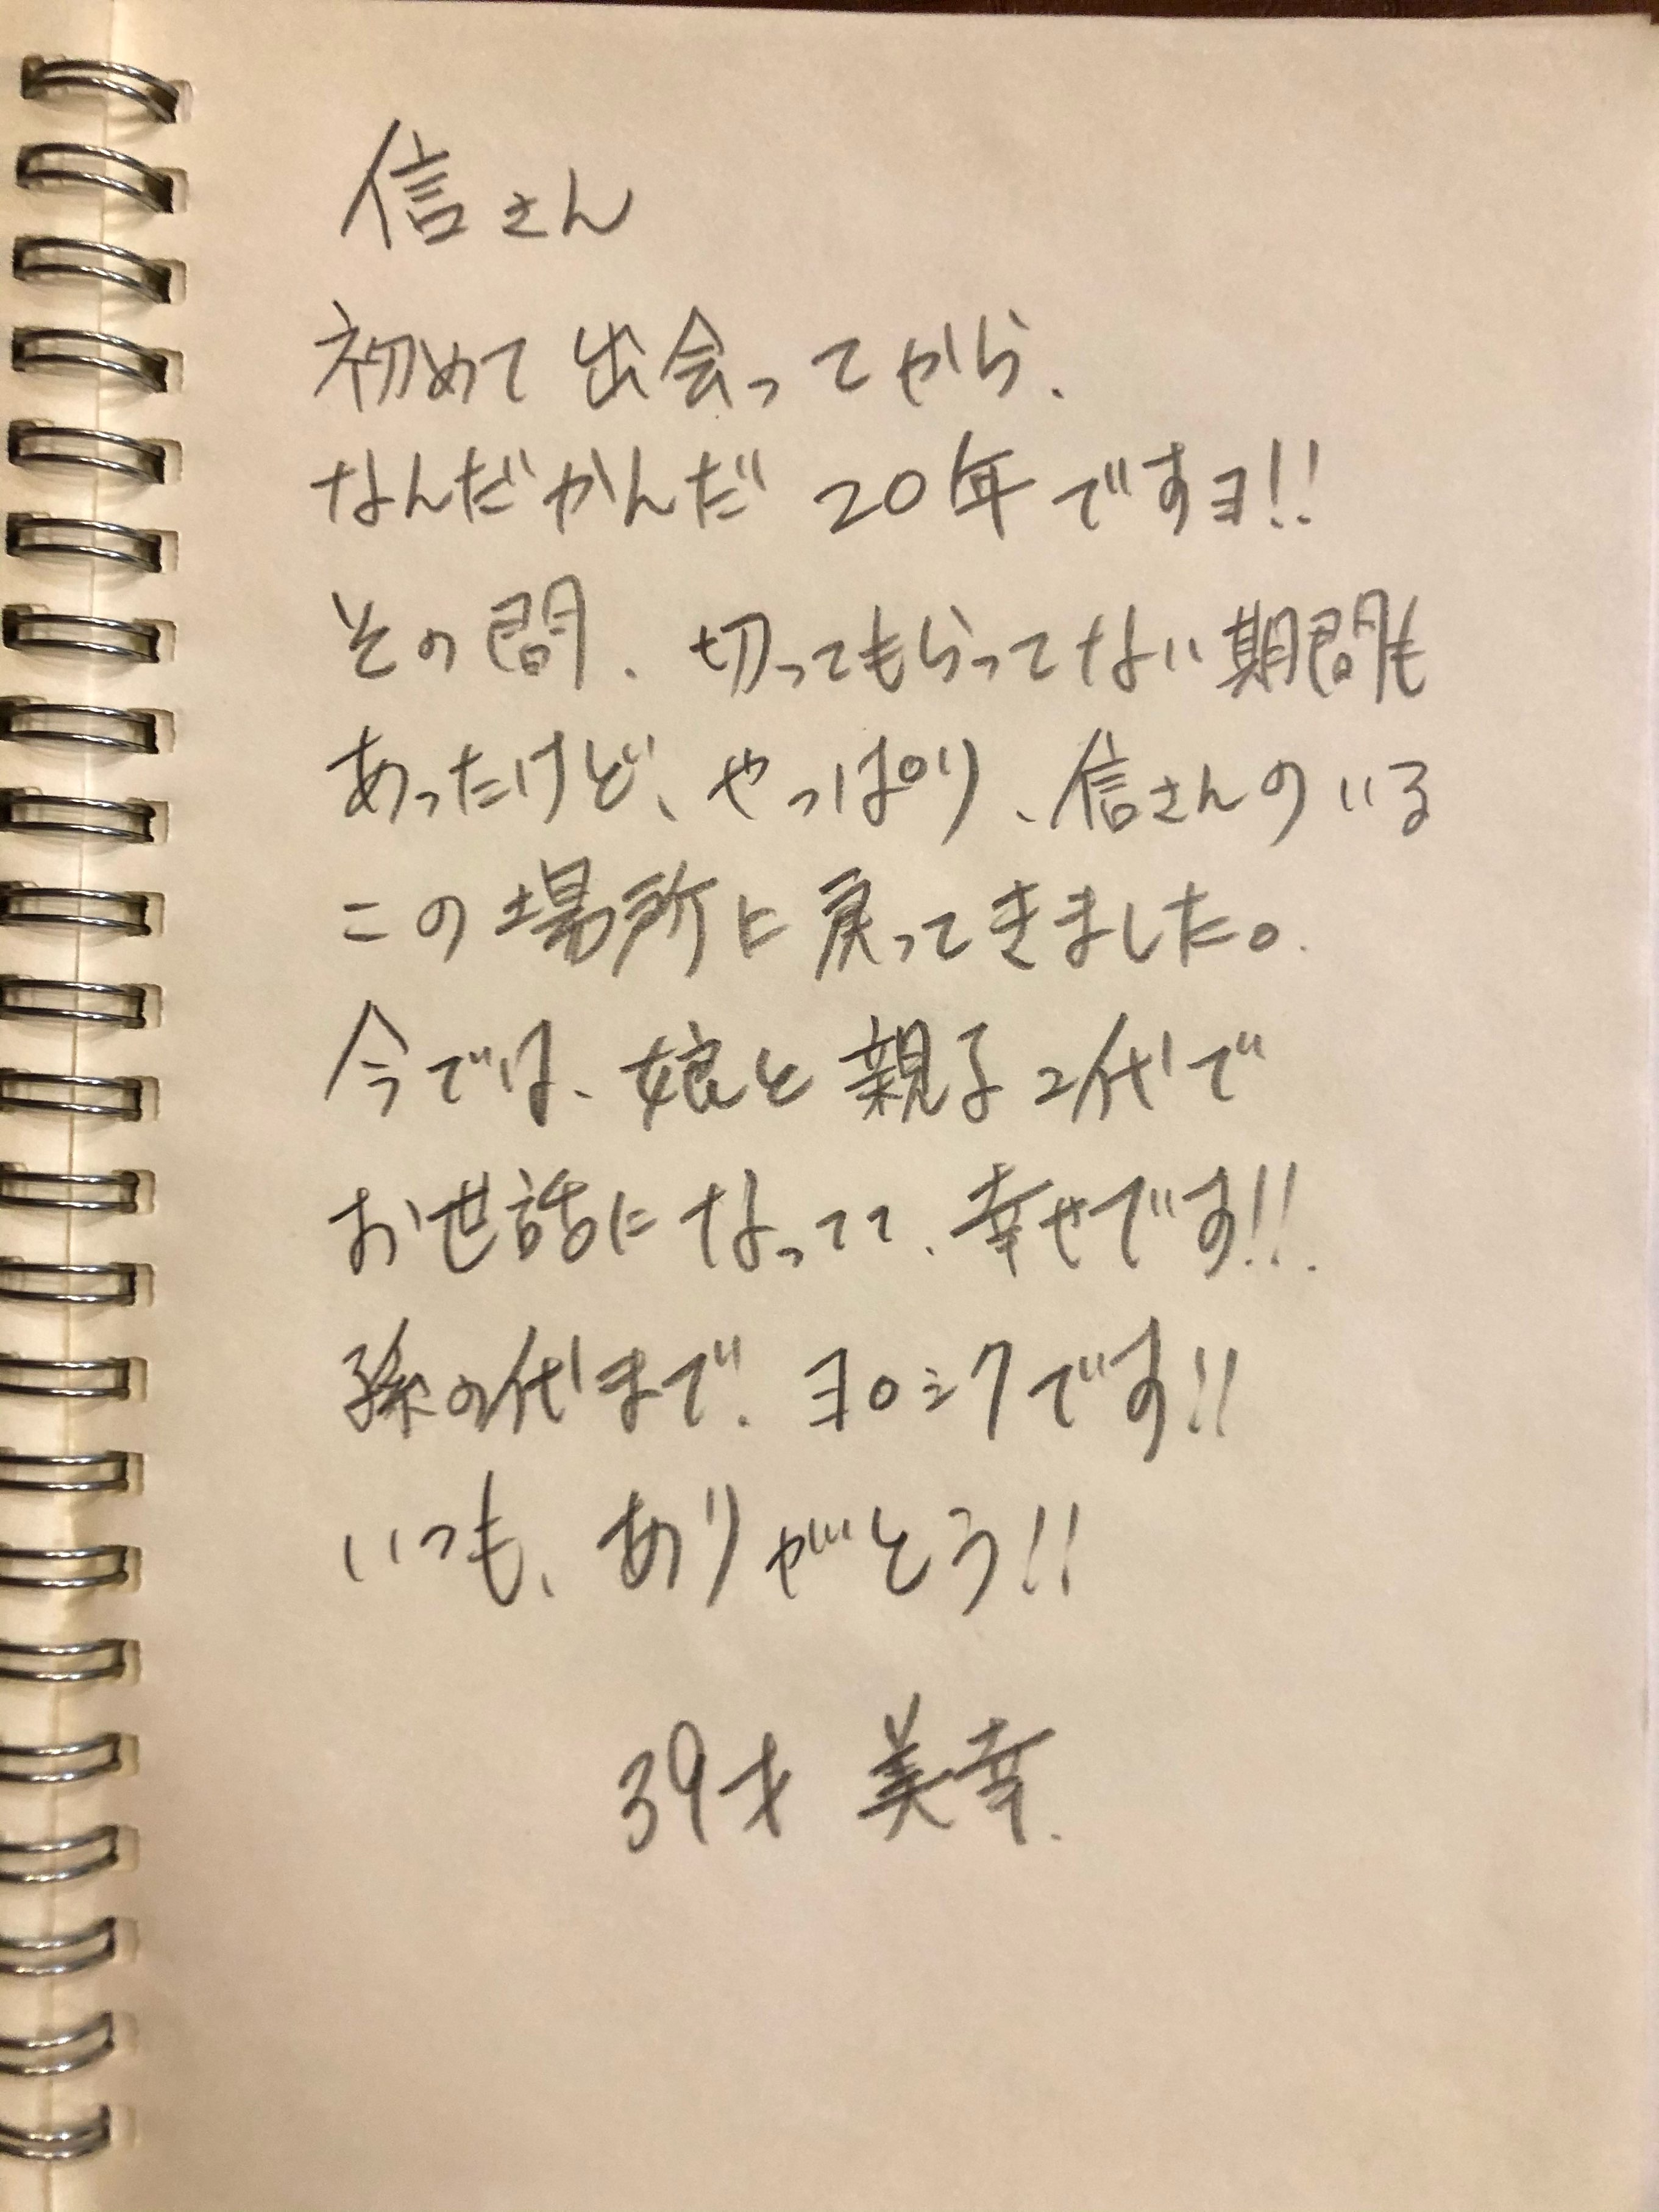 信さん
初めて出会ってから、
なんだかんだ 20年ですヨ!!
その間、切ってもらってない期間も
あったけど、やっぱり、信さんのいる
この場所に戻ってきました。
今では、娘と親子2代で
お世話になってて、幸せです!!
孫の代まで、ヨロシクです!!
いつも、ありがとう!!
39才 美幸.